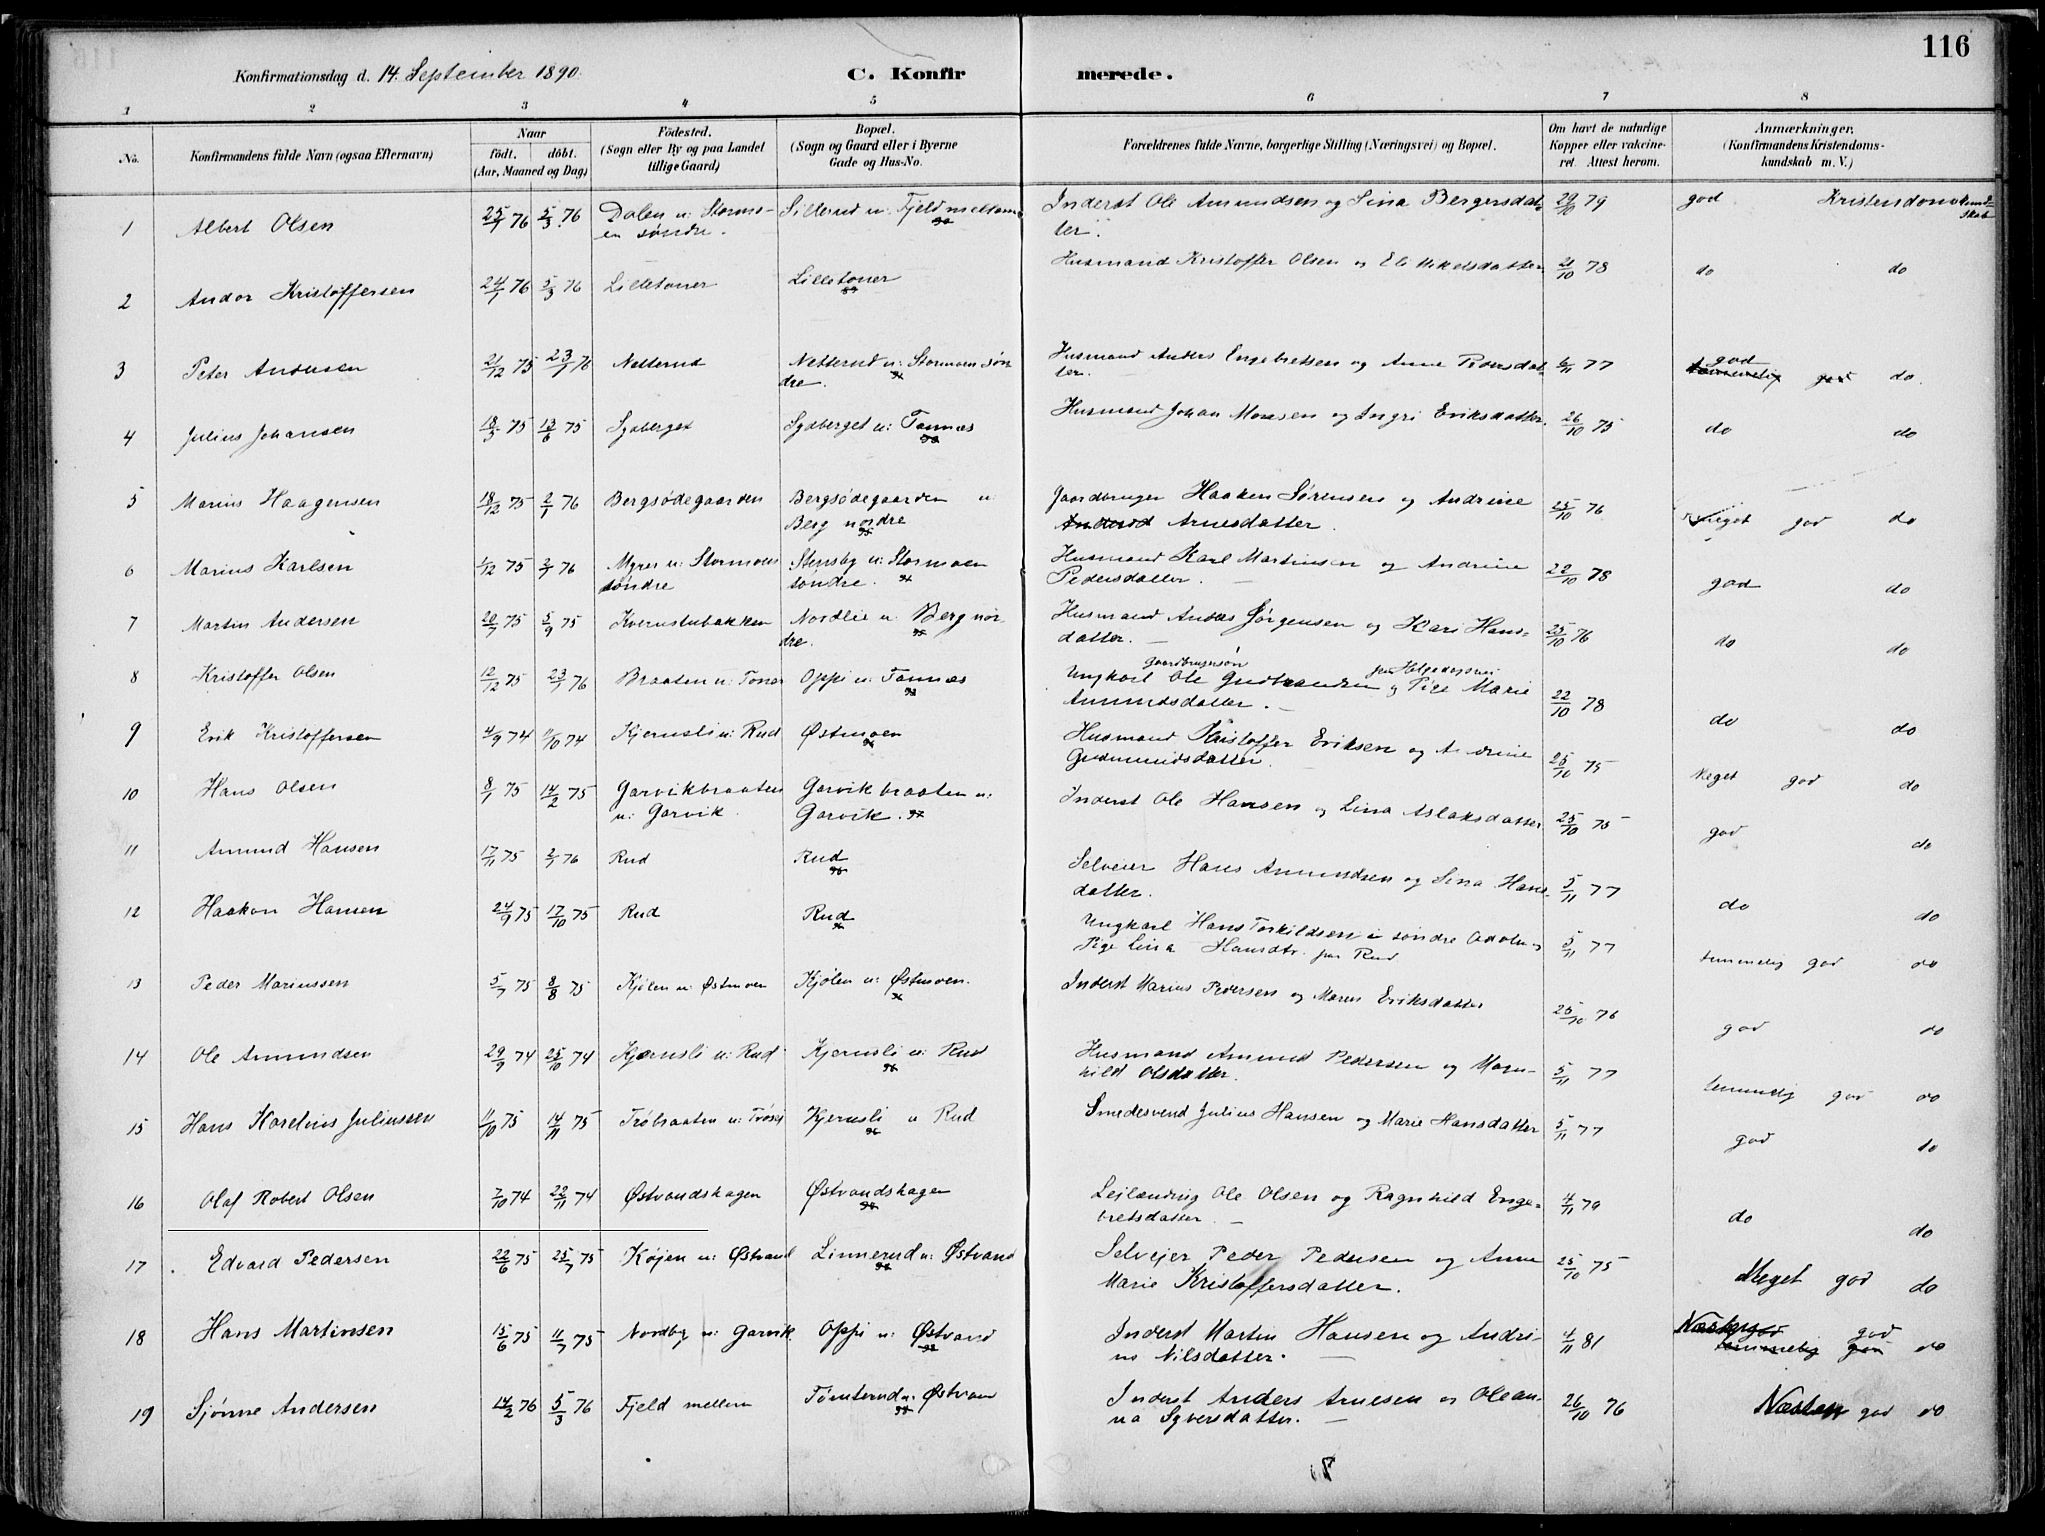 116
Konfirmationsdag d. 14. September 1890.
C. Konfirmerede.
1 2 3 4 5 6 7 8
No.
Konfirmandens fulde Navn (ogsaa Efternavn)
Naar
födt. döbt.
(Aar, Maaned og Dag)
Födested.
(Sogn eller By og paa Landet
tillige Gaard)
Bopæl.
(Sogn og Gaard eller i Byerne
Gade og Hus-No.
Forældrenes fulde Navne, borgerlige Stilling (Næringsvei) og Bopæl.
Om havt de naturlige
Kopper eller vakcine-
ret. Attest herom.
Anmærkninger,
(Konfirmandens Kristendoms-
kundskab m. V.)
1 Albert Olsen 25/1 76 5/3 76 Dalen u: Stormo- Sillerud u: Fjeld mellem Inderst Ole Amundsen og Lina Bergersdat- 29/10 79 god Kristendomskund-
en søndre. ter. skab
2 Andor Kristoffersen 24/1 76 5/3 76 Lilletoner Lilletoner Husmand Kristoffer Olsen og Eli Mikelsdatter 21/10 78 do do
3 Peter Andersen 21/12 75 23/1 76 Netterud Netterud u: Stormoen søn Husmand Anders Engebretsen og Anne Pedersdat- 6/11 77 god do.
dre. ter. temmelig god
4 Julius Johansen 18/3 75 13/6 75 Sgaberget Sgaberget u: Tannæs Husmand Johan Monsen og Ingri Eriksdatter. 26/10 75 do do
5 Marius Haagensen 18/12 75 2/1 76 Bergsødegaarden Bergsødegaarden u Gaardbruger Haaken Sørensen og Andrine 25/10 76 meget god do
Berg nordre Arnesdatter.
6 Marius Karlsen 1/12 75 2/1 76 Myrer u: Stormoen Stensby u: Stormoen Husmand Karl Martinsen og Andrine 22/10 78 god do
søndre søndre. Pedersdatter.
7 Martin Andersen 20/7 75 5/9 75 Kvernstubakken Nordlie u: Berg nor Husmand Anders Jørgensen og Kari Hans- 25/10 76 do do
dre. datter.
8 Kristoffer Olsen 12/12 75 23/1 76 Braaten u: Toner Oppi u: Tannæs Ungkarl gaardbrugersøn Ole Gudbrandsen og Pige Marie 22/10 78 do do
Amundsdatter.
9 Erik Kristoffersen 4/9 74 11/10 74 Kjernsli u: Rud Østmoen Husmand Kristoffer Eriksen og Andrine 25/10 75 Meget god do
Gudmundsdatter.
10 Hans Olsen 8/1 75 14/2 75 Garvikbraaten Garvikbraaten u: Inderst Ole Hansen og Lina Aslaksdatter 25/10 75 god do
u: Garvik Garvik.
11 Amund Hansen 17/11 75 2/1 76 Rud Rud Selveier Hans Amundsen og Lina Hans- 5/11 77 do do
datter.
12 Haakon Hansen 24/9 75 17/10 75 Rud Rud Ungkarl Hans Torkildsen i søndre 5/11 77 temmelig god do
Pige Lina Hansdtr. fra Rud
13 Peder Mariussen 5/7 75 8/8 75 Kjølen u: Østmoen Kjølen u: Østmoen. Inderst Marius Pedersen og Maren Eriksdatter 25/10 76 god do
14 Ole Amundsen 29/9 74 25/10 74 Kjernsli u: Rud Kjernsli u: Rud Husmand Amund Pedersen og Magn- 5/11 77 temmelig god do
hild Olsdatter.
15 Hans Karelius Juliussen 11/10 75 14/11 75 Trøbraaten u: Kjernsli u Rud Smedesvend Julius Hansen og Marie Hansdatter 5/11 77 god do
16 Olaf Robert Olsen 7/10 74 22/11 74 Østvandshagen Østvandshagen Leilænding Ole Olsen og Ragnhild Enge- 4/11 79 do do
bretsdatter.
17 Edvard Pedersen 22/6 75 25/7 75 Køjen u: Østvand Linnerud u: Østvand Selvejer Peder Pedersen og Anne 25/10 75 Meget god do
Marie Kristoffersdatter.
18 Hans Martinsen 15/6 75 11/7 75 Nordby u: Garvik Oppi u: Østvand Inderst Martin Hansen og Andri- 4/11 81 Næsten god god do
ne Nilsdatter. temmelig god
19 Sjønne Andersen 14/2 76 5/3 76 Fjeld mellem Tømterud u: Østvan Inderst Anders Arnesen og Olean- 26/10 76 Næsten god do
na Syversdatter.